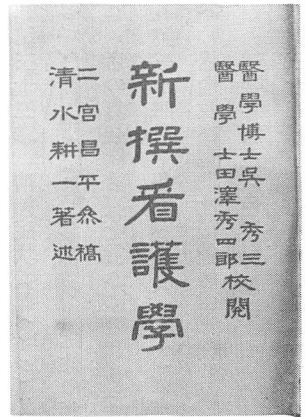 醫學博士吳 秀三
醫學士田澤秀四郎校閱
新撰看護學
二宮昌平叅稿
清水耕一著述